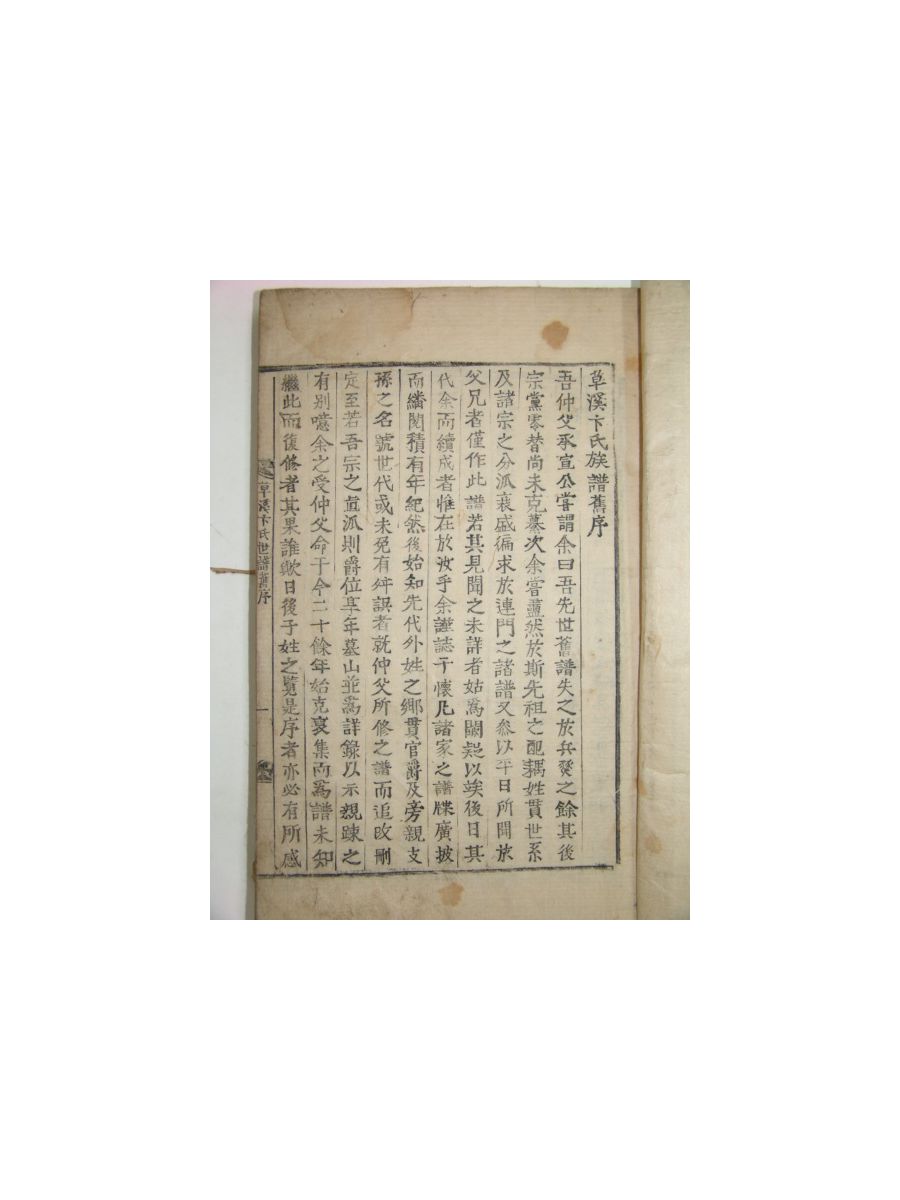 草溪卞氏族譜舊序
吾仲父承宣公嘗謂余曰吾先世舊譜失之於兵燹之餘其後
宗黨零替尚未克纂次余嘗盡然於斯先祖之配耦姓貫世系
及諸宗之分派衰盛徧求於連門之諸譜又參以平日所聞於
父兄者僅作此譜若其見聞之未詳者姑爲闕疑以俟後日其
代余而續成者惟在於汝乎余謹誌于懷凡諸家之譜牒廣披
而繙閱積有年紀然後始知先代外姓之鄕貫官爵及旁親支
孫之名號世代或未免有舛誤者就仲父所修之譜而追改刪
定至若吾宗之直派則爵位享年墓山並爲詳錄以示親踈之
有別噫余之受仲父命于今二十餘年始克裒集而爲譜未知
繼此而復修者其果誰歟日後子姓之覽是序者亦必有所感
草溪卞氏世譜舊序 一